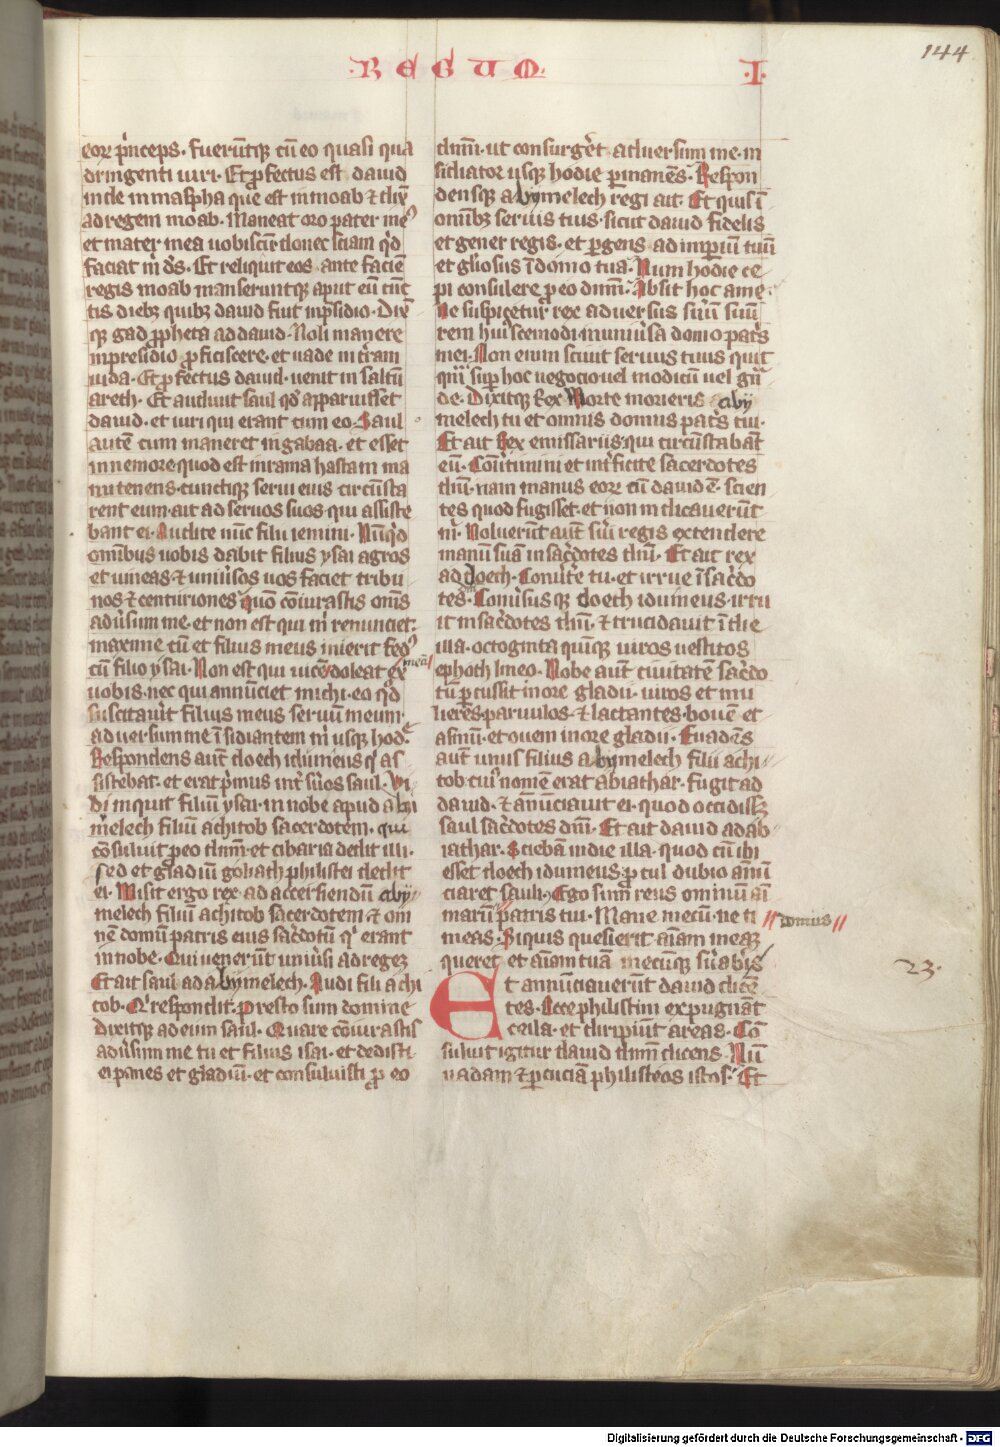 144
·R E G U M·
·I·
eoꝝ p̄nceps. fuerūtqꝫ cū eo quasi qua
dringenti uiri. Et ꝓfectus est dauid
inde in maspha que est in moab ⁊ dix̄
ad regem moab. Maneat oro pater meꝰ
et mater mea uobiscū donec sciam qͥd
faciat m̄ ds̄. Et reliquit eos ante faciē
regis moab manseruntqꝫ aput eū cūc
tis diebꝫ quibꝫ dauid fuit ī p̄sidio. Dix̄
qꝫ gad ꝓpheta ad dauid. Noli manere
in presidio ꝓficiscere. et uade in t̄ram
iuda. Et ꝓfectus dauid. uenit in saltū
areth. Et audiuit saul qd̄ apparuisset
dauid. et uiri qui erant cum eo. Saul
autē cum maneret in gabaa. et esset
in nemore quod est in rama hastam ma
nu tenens. cunctiqꝫ serui eius circūsta
rent eum. ait ad seruos suos. qui assiste
bant ei. Audite nūc filii iemini. Nūqͥd
omībus uobis dabit filius ysai agros
et uineas. ⁊ uniūsos uos faciet tribu
nos ⁊ centuriones quō cōiurastis om̄s
adūsum me. et non est qui m̄ renunciet.
maxime cū et filius meus inierit fedꝰ
cū filio ysai. Non est qui uicē doleat ex
meā
uobis. nec qui annūciet michi. eo qͥd
suscitauīt filius meus seruū meum.
aduersum me īsidiantem m̄ usqꝫ hod.
Respondens aut̄ doech idumeus qͥ as
sistebat. et erat p̄mus int̄ sūos saul. Vi
di inquit filiū ysai. in nobe apud aby
melech filiū achitob sacerdotem. qui
cōsuluit ꝓ eo dnm̄. et cibaria dedit illi.
sed et gladiū goliath philistei dedit
ei. Misit ergo rex ad accersiendū aby
melech filiū achitob sacerdotem ⁊ om
nē domū patris eius sac̄dotū qͥ erant
in nobe. Qui uenerūt uniūsi ad regeꝫ
Et ait saul ad abymelech. Audi fili achi
tob. Qͥ respondit. presto sum domine
dixitqꝫ ad eum saul. Quare cōiurastis
adūsim me tu et filius isai. et dedisti
ei panes et gladiū. et consuluisti ꝓ eo
dnm̄. ut consurḡet aduersum me. in
sidiator usqꝫ hodie ꝑmanēs. Respon
densqꝫ abymelech regi ait. Et quis ī
omībꝫ seruis tuis. sicut dauid fidelis
et gener regis. et ꝑgens ad imꝑiū tuū
et gl̄iosus ī domo tua. Num hodie ce
pi consulere ꝓ eo dnm̄. Absit hoc a me.
Ne suspicetur rex aduersus sūū suū
rem huiꝰscemodi. in uniūsa domo pat̄s
mei. Non enim sciuit seruus tuus quic
quā suꝑ hoc negocio uel modicū uel gn̄
de. Dixitqꝫ Rex Morte morieris aby
melech tu et omnis domus pat̄s tui.
Et ait Rex emissariis. qui circūstabāt
eū. Conūtimini et int̄ficite sacerdotes
dnī. nam manus eoꝝ cū dauid ē. scien
tes quod fugisset. et non indicauerūt
m̄. Noluerūt aut̄ sūi regis extendere
manū suā in sac̄dotes dnī. Et ait rex
ad doech. Conūt̄e tu. et irrue ī sac̄do
tes. Conūsus qꝫ doech idumeus. irru
it in sac̄dotes dnī. ⁊ trucidauit ī die
illa. octoginta quīqꝫ uiros uestitos
ephoth lineo. Nobe aut̄ ciuitatē sac̄do
tū ꝑcussit in ore gladii. uiros et mu
lieres. paruulos. ⁊ lactantes. bouē et
asinū. et ouem in ore gladii. Euadēs
aut̄ unus filius abymelech filii achi
tob cuiꝰ nomē erat abiathar. fugit ad
dauid. ⁊ anūciauit ei. quod occidissꝫ
saul sac̄dotes dnī. Et ait dauid ad ab
iathar. Sciebā in die illa. quod cū ibi
esset doech idumeus. ꝓcul dubio anū
ciaret sauli. Ego sum reus omniū aī
marū patris tui. Mane mecū. ne ti
domus
meas. Siquis quesierit aīam meaꝫ
queret et aīam tuā mecūqꝫ sūabis̄
23.
Et annūciauerūt dauid dicē
tes. Ecce philistim expugnāt
ceila. et diripiūt areas. Cō
suluit igitur dauid dnm̄ dicens. Nū
uadam ⁊ ꝑcuciā philisteos istos. Et
Digitalisierung gefördert durch die Deutsche Forschungsgemeinschaft - DFG